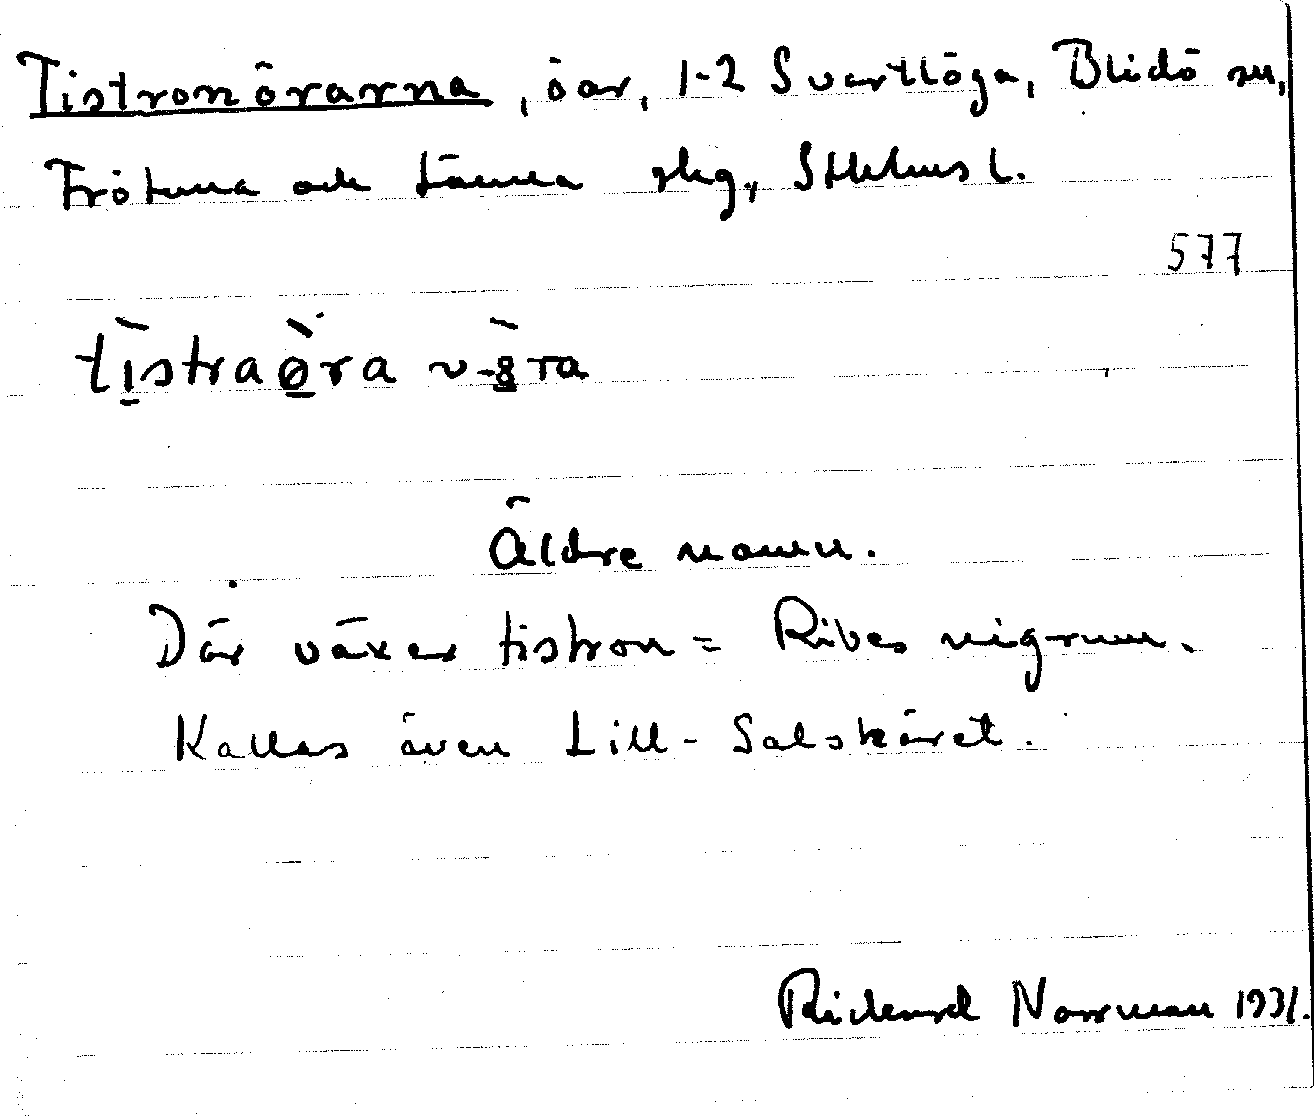 Tistronörarna, öar, 1-2 Svartlöga, Blidö sn,
Frötuna och Länna skg, Sthlms l.
577
tìstraø̀ra v -ö̀ra
Äldre namn.
Där växer tistron = Ribes nigrum.
Kallas även Lill-Salskäret.
Rickard Norrman 1931.